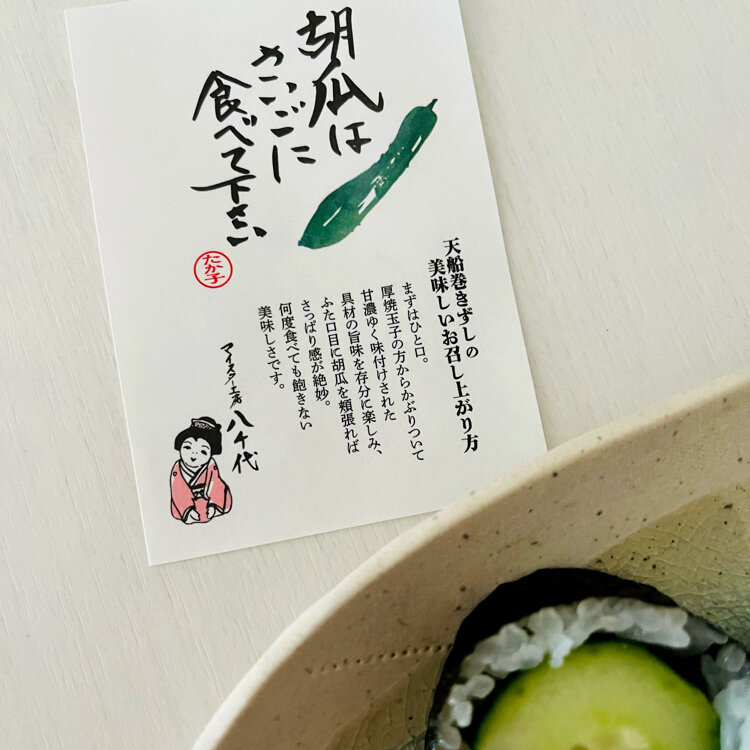 胡瓜は
さいごに
食べて下さい
たか子
天船巻きずしの
美味しいお召し上がり方
まずはひと口。
厚焼玉子の方からかぶりついて
甘濃ゆく味付けされた
具材の旨味を存分に楽しみ、
ふた口目に胡瓜を頬張れば
さっぱり感が絶妙。
何度食べても飽きない
美味しさです。
マイスター工房 八千代